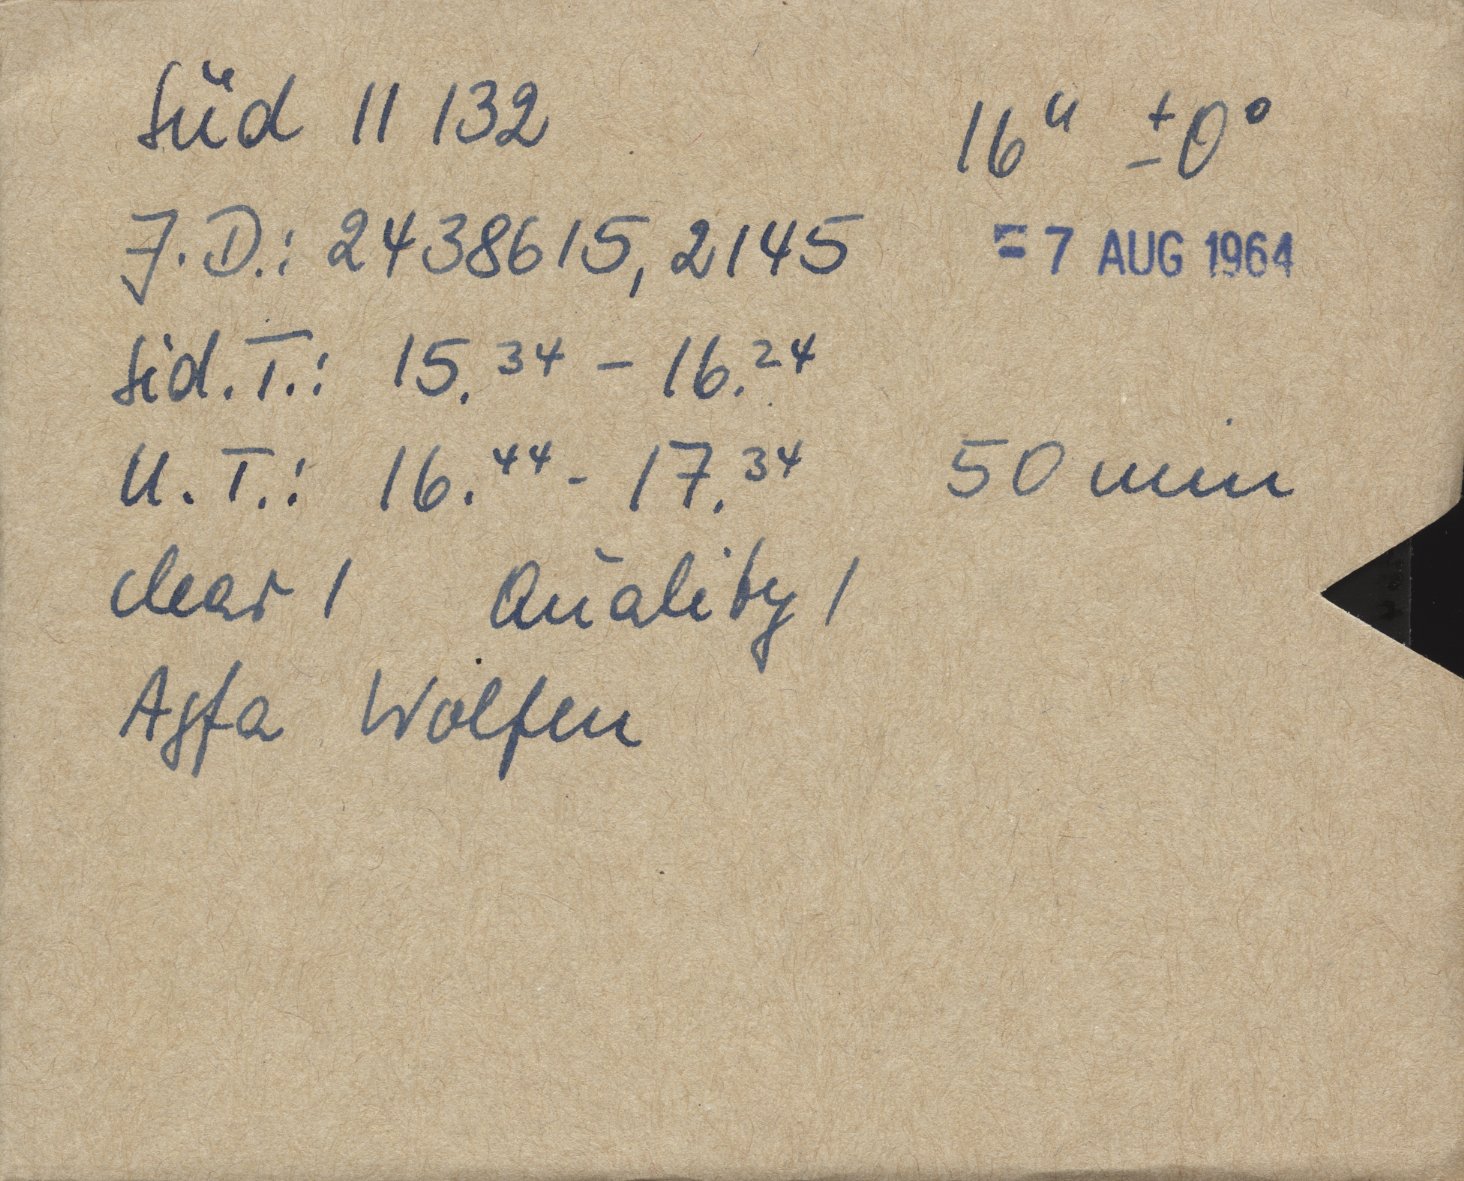 Süd 11 132 16ʰ ±0°
J.D.: 2438615,2145 = 7 AUG 1964
Sid.T.: 15.³⁴ – 16.²⁴
U.T.: 16.⁴⁴ - 17.³⁴ 50 min
clear 1 Quality 1
Agfa Wolfen